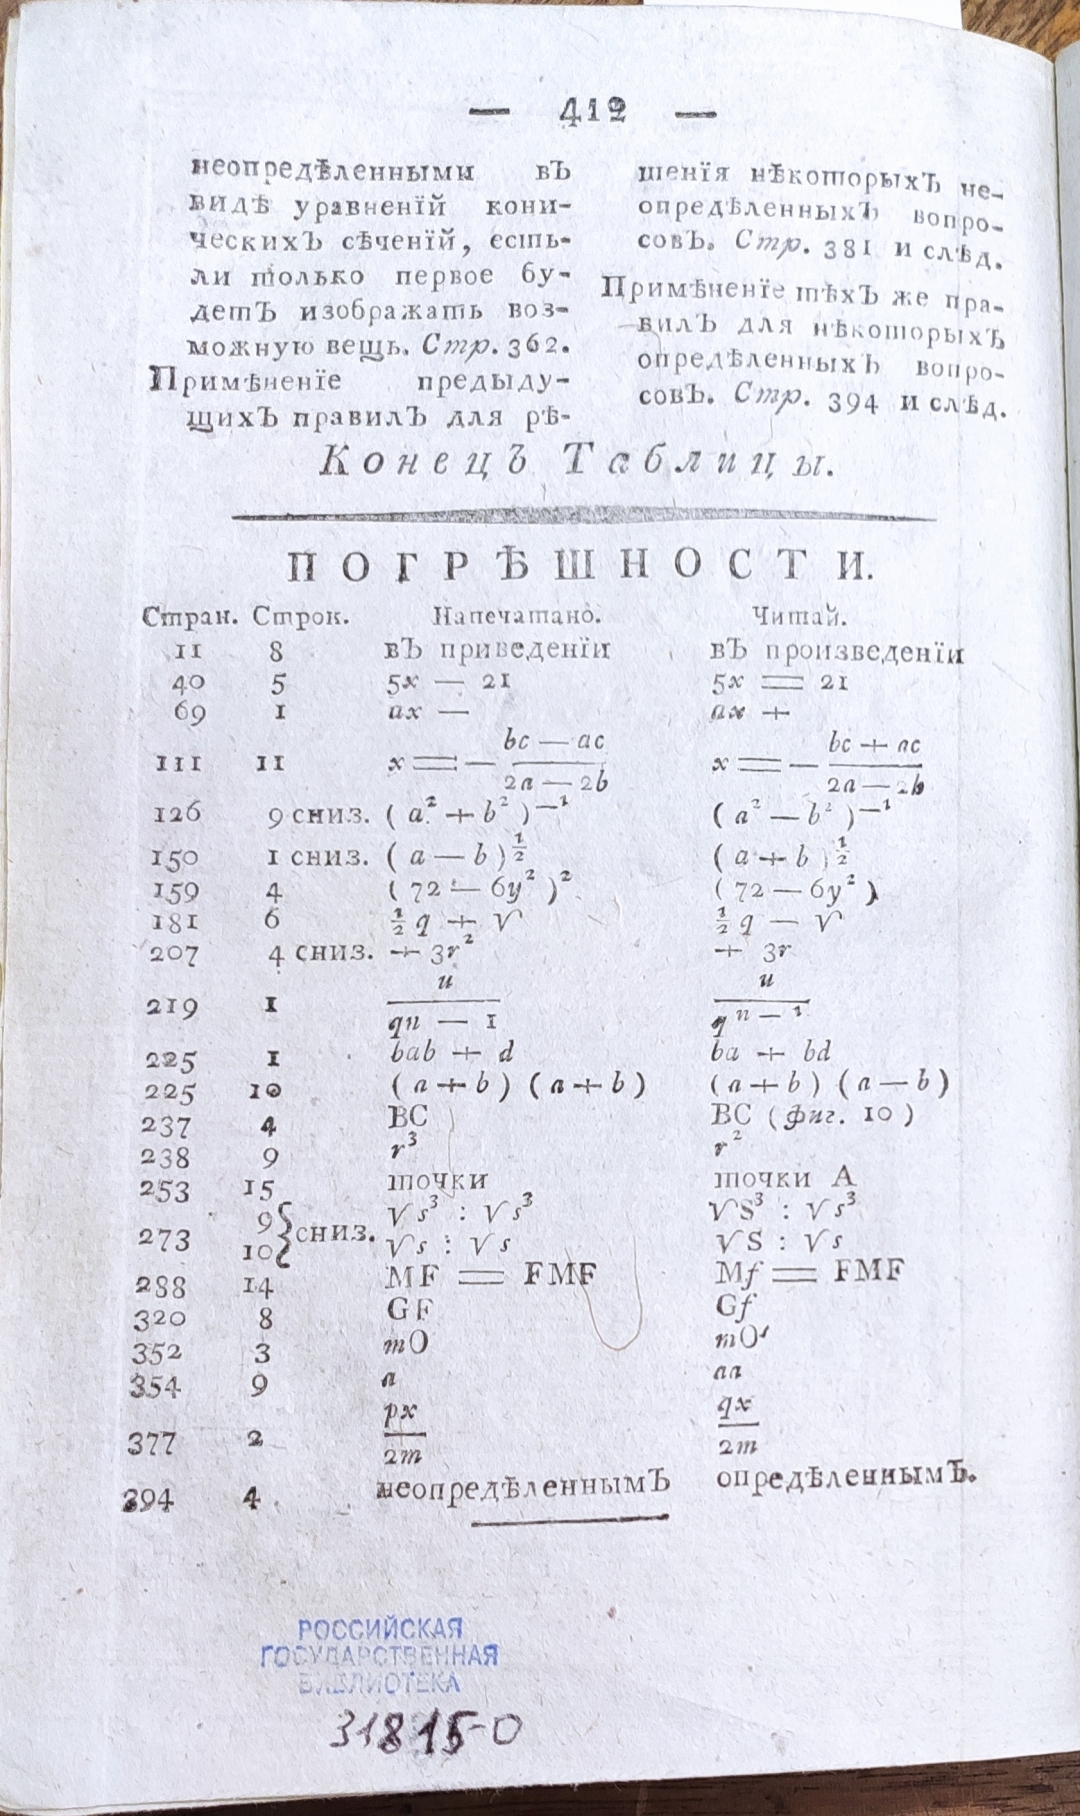 — 412 —
неопредѣленными въ
видѣ уравненїй кони-
ческихъ сѣченїй, есть-
ли только первое бу-
детъ изображать воз-
можную вещь. Стр. 362.
Примѣненїе предыду-
щихъ правилъ для рѣ-
шенїя нѣкоторыхъ не-
опредѣленныхъ вопро-
совъ. Стр. 381 и слѣд.
Примѣненїе тѣхъ же пра-
вилъ для нѣкоторыхъ
опредѣленныхъ вопро-
совъ. Стр. 394 и слѣд.
Конецъ Таблицы.
ПОГРѢШНОСТИ.
Стран. Строк. Напечатано. Читай.
11 8 въ приведенїи въ произведенїи
40 5 5x — 21 5x = 21
69 1 ax — ax +
111 11 x = — (bc — ac)/(2a — 2b) x = — (bc + ac)/(2a — 2b)
126 9 сниз. (a² + b²)⁻¹ (a² — b²)⁻¹
150 1 сниз. (a — b)½ (a + b)½
159 4 (72 — 6y²)² (72 — 6y²)
181 6 ½ q + √ ½ q — √
207 4 сниз. + 3r² + 3r
219 1 u/(qn — 1) u/(qⁿ⁻¹)
225 1 bab + d ba + bd
225 10 (a + b) (a + b) (a + b) (a — b)
237 4 BC BC (фиг. 10)
238 9 r³ r²
253 15 точки точки A
273 9 } сниз. √s³ : √s³ √S³ : √s³
10 √s : √s √S : √s
288 14 MF = FMF Mf = FMF
320 8 GF Gf
352 3 mO mO'
354 9 a aa
377 2 px/2m qx/2m
394 4 неопредѣленнымъ опредѣленнымъ.
РОССИЙСКАЯ
ГОСУДАРСТВЕННАЯ
БИБЛИОТЕКА
31815-0